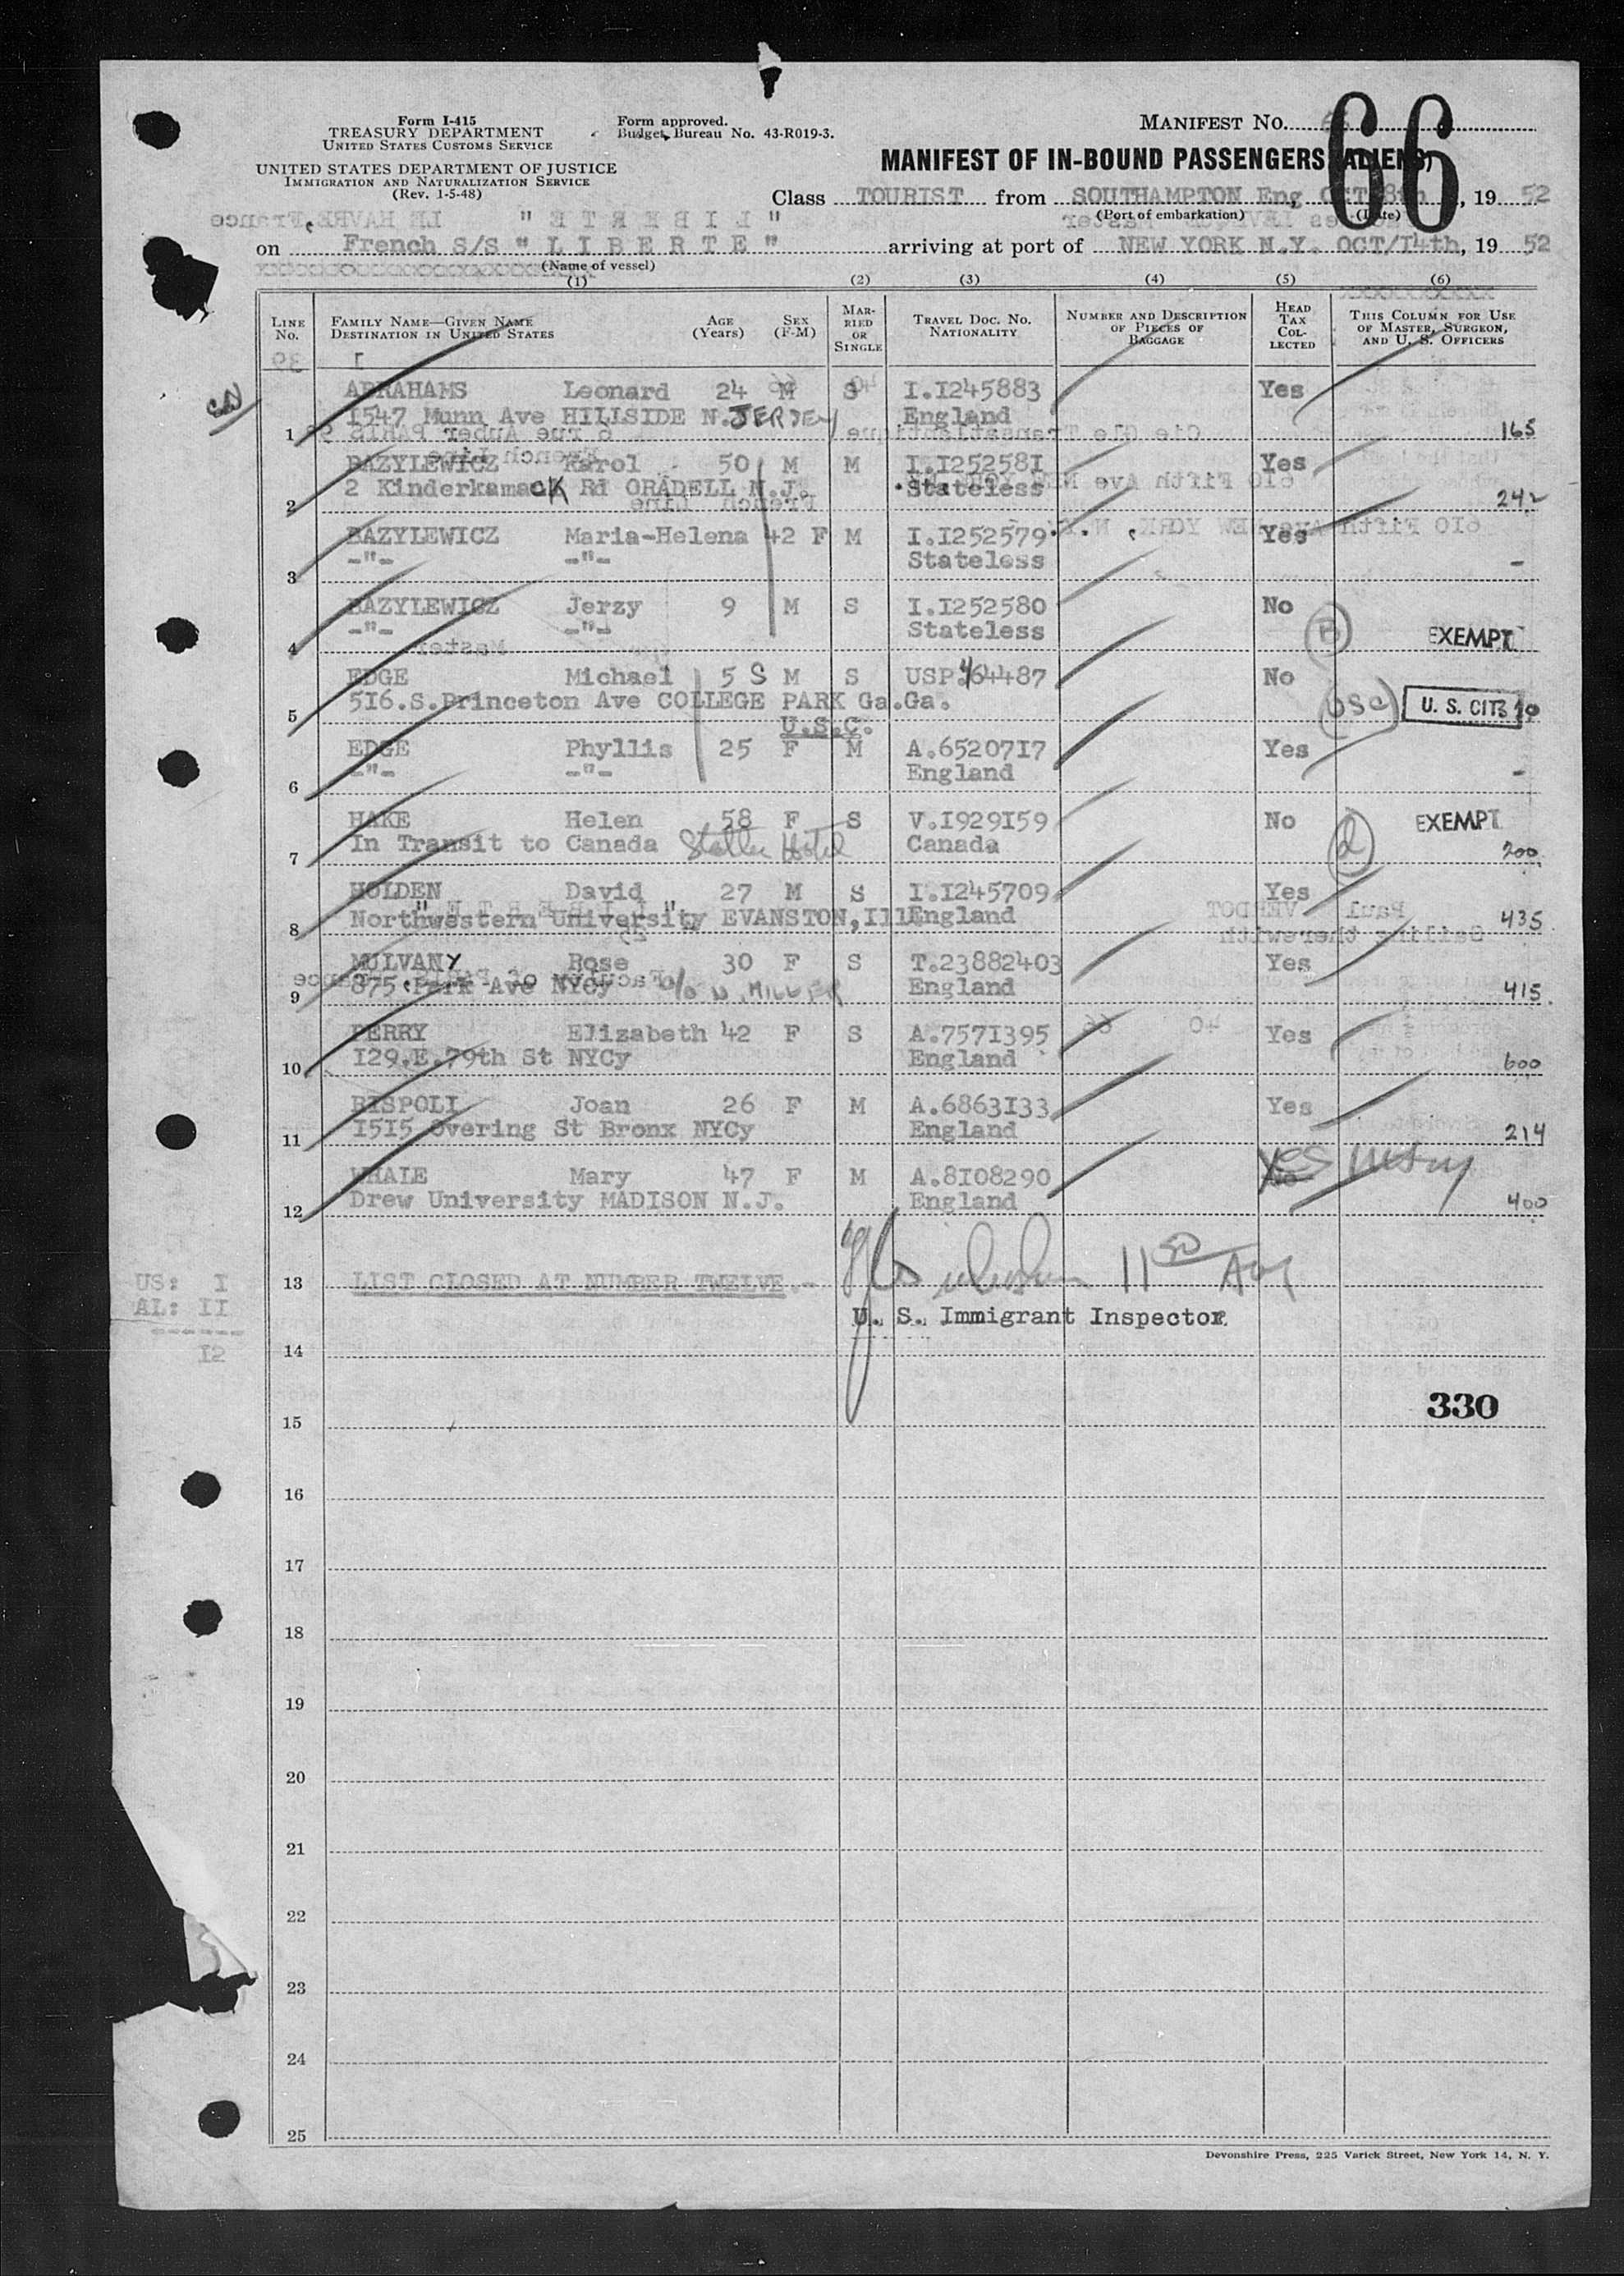 Form I-415
TREASURY DEPARTMENT
UNITED STATES CUSTOMS SERVICE
UNITED STATES DEPARTMENT OF JUSTICE
IMMIGRATION AND NATURALIZATION SERVICE
(Rev. 1-5-48)
Form approved.
Budget Bureau No. 43-R019-3.
MANIFEST No.
66
MANIFEST OF IN-BOUND PASSENGERS (ALIENS)
Class TOURIST from SOUTHAMPTON Eng OCT 8th, 1952
(Port of embarkation) (Date)
on French S/S "LIBERTE" arriving at port of NEW YORK N.Y. OCT/14th, 1952
(Name of vessel)
(1) (2) (3) (4) (5) (6)
LINE No. FAMILY NAME—GIVEN NAME DESTINATION IN UNITED STATES AGE (Years) SEX (F-M) MARRIED OR SINGLE TRAVEL DOC. No. NATIONALITY NUMBER AND DESCRIPTION OF PIECES OF BAGGAGE HEAD TAX COLLECTED THIS COLUMN FOR USE OF MASTER, SURGEON, AND U. S. OFFICERS
ABRAHAMS Leonard 24 M S I.I245883 Yes
1 1547 Munn Ave HILLSIDE N.JERSEY England 165
BAZYLEWICZ Karol 50 M M I.I252581 Yes
2 2 Kinderkamack Rd ORADELL N.J. Stateless 242
BAZYLEWICZ Maria-Helena 42 F M I.I252579 Yes
3 -"- -"- Stateless -
BAZYLEWICZ Jerzy 9 M S I.I252580 No
4 -"- -"- Stateless EXEMPT
EDGE Michael 5 S M S USP.464487 No
5 516.S.Princeton Ave COLLEGE PARK Ga.Ga. USC U. S. CIT.
U.S.C.
EDGE Phyllis 25 F M A.6520717 Yes
6 -"- -"- England -
HAKE Helen 58 F S V.I929159 No EXEMPT
7 In Transit to Canada Statler Hotel Canada 200
HOLDEN David 27 M S I.I245709 Yes
8 Northwestern University EVANSTON,Ill England 435
MULVANY Rose 30 F S T.23882403 Yes
9 875.Park Ave NYCy c/o D. MILLER England 415
PERRY Elizabeth 42 F S A.7571395 Yes
10 129.E.79th St NYCy England 600
RISPOLI Joan 26 F M A.6863133 Yes
11 1515 Overing St Bronx NYCy England 214
WHALE Mary 47 F M A.8108290 Yes
12 Drew University MADISON N.J. England 400
US: I
AL: II
------
12
13 LIST CLOSED AT NUMBER TWELVE.-
U. S. Immigrant Inspector
14
330
15
16
17
18
19
20
21
22
23
24
25
Devonshire Press, 225 Varick Street, New York 14, N. Y.